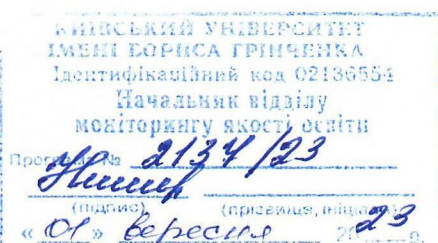 КИЇВСЬКИЙ УНІВЕРСИТЕТ
ІМЕНІ БОРИСА ГРІНЧЕНКА
Ідентифікаційний код 02136554
Начальник відділу
моніторингу якості освіти
Програма № 2137/23
(підпис) (прізвище, ініціали)
«01» вересня 2023 р.